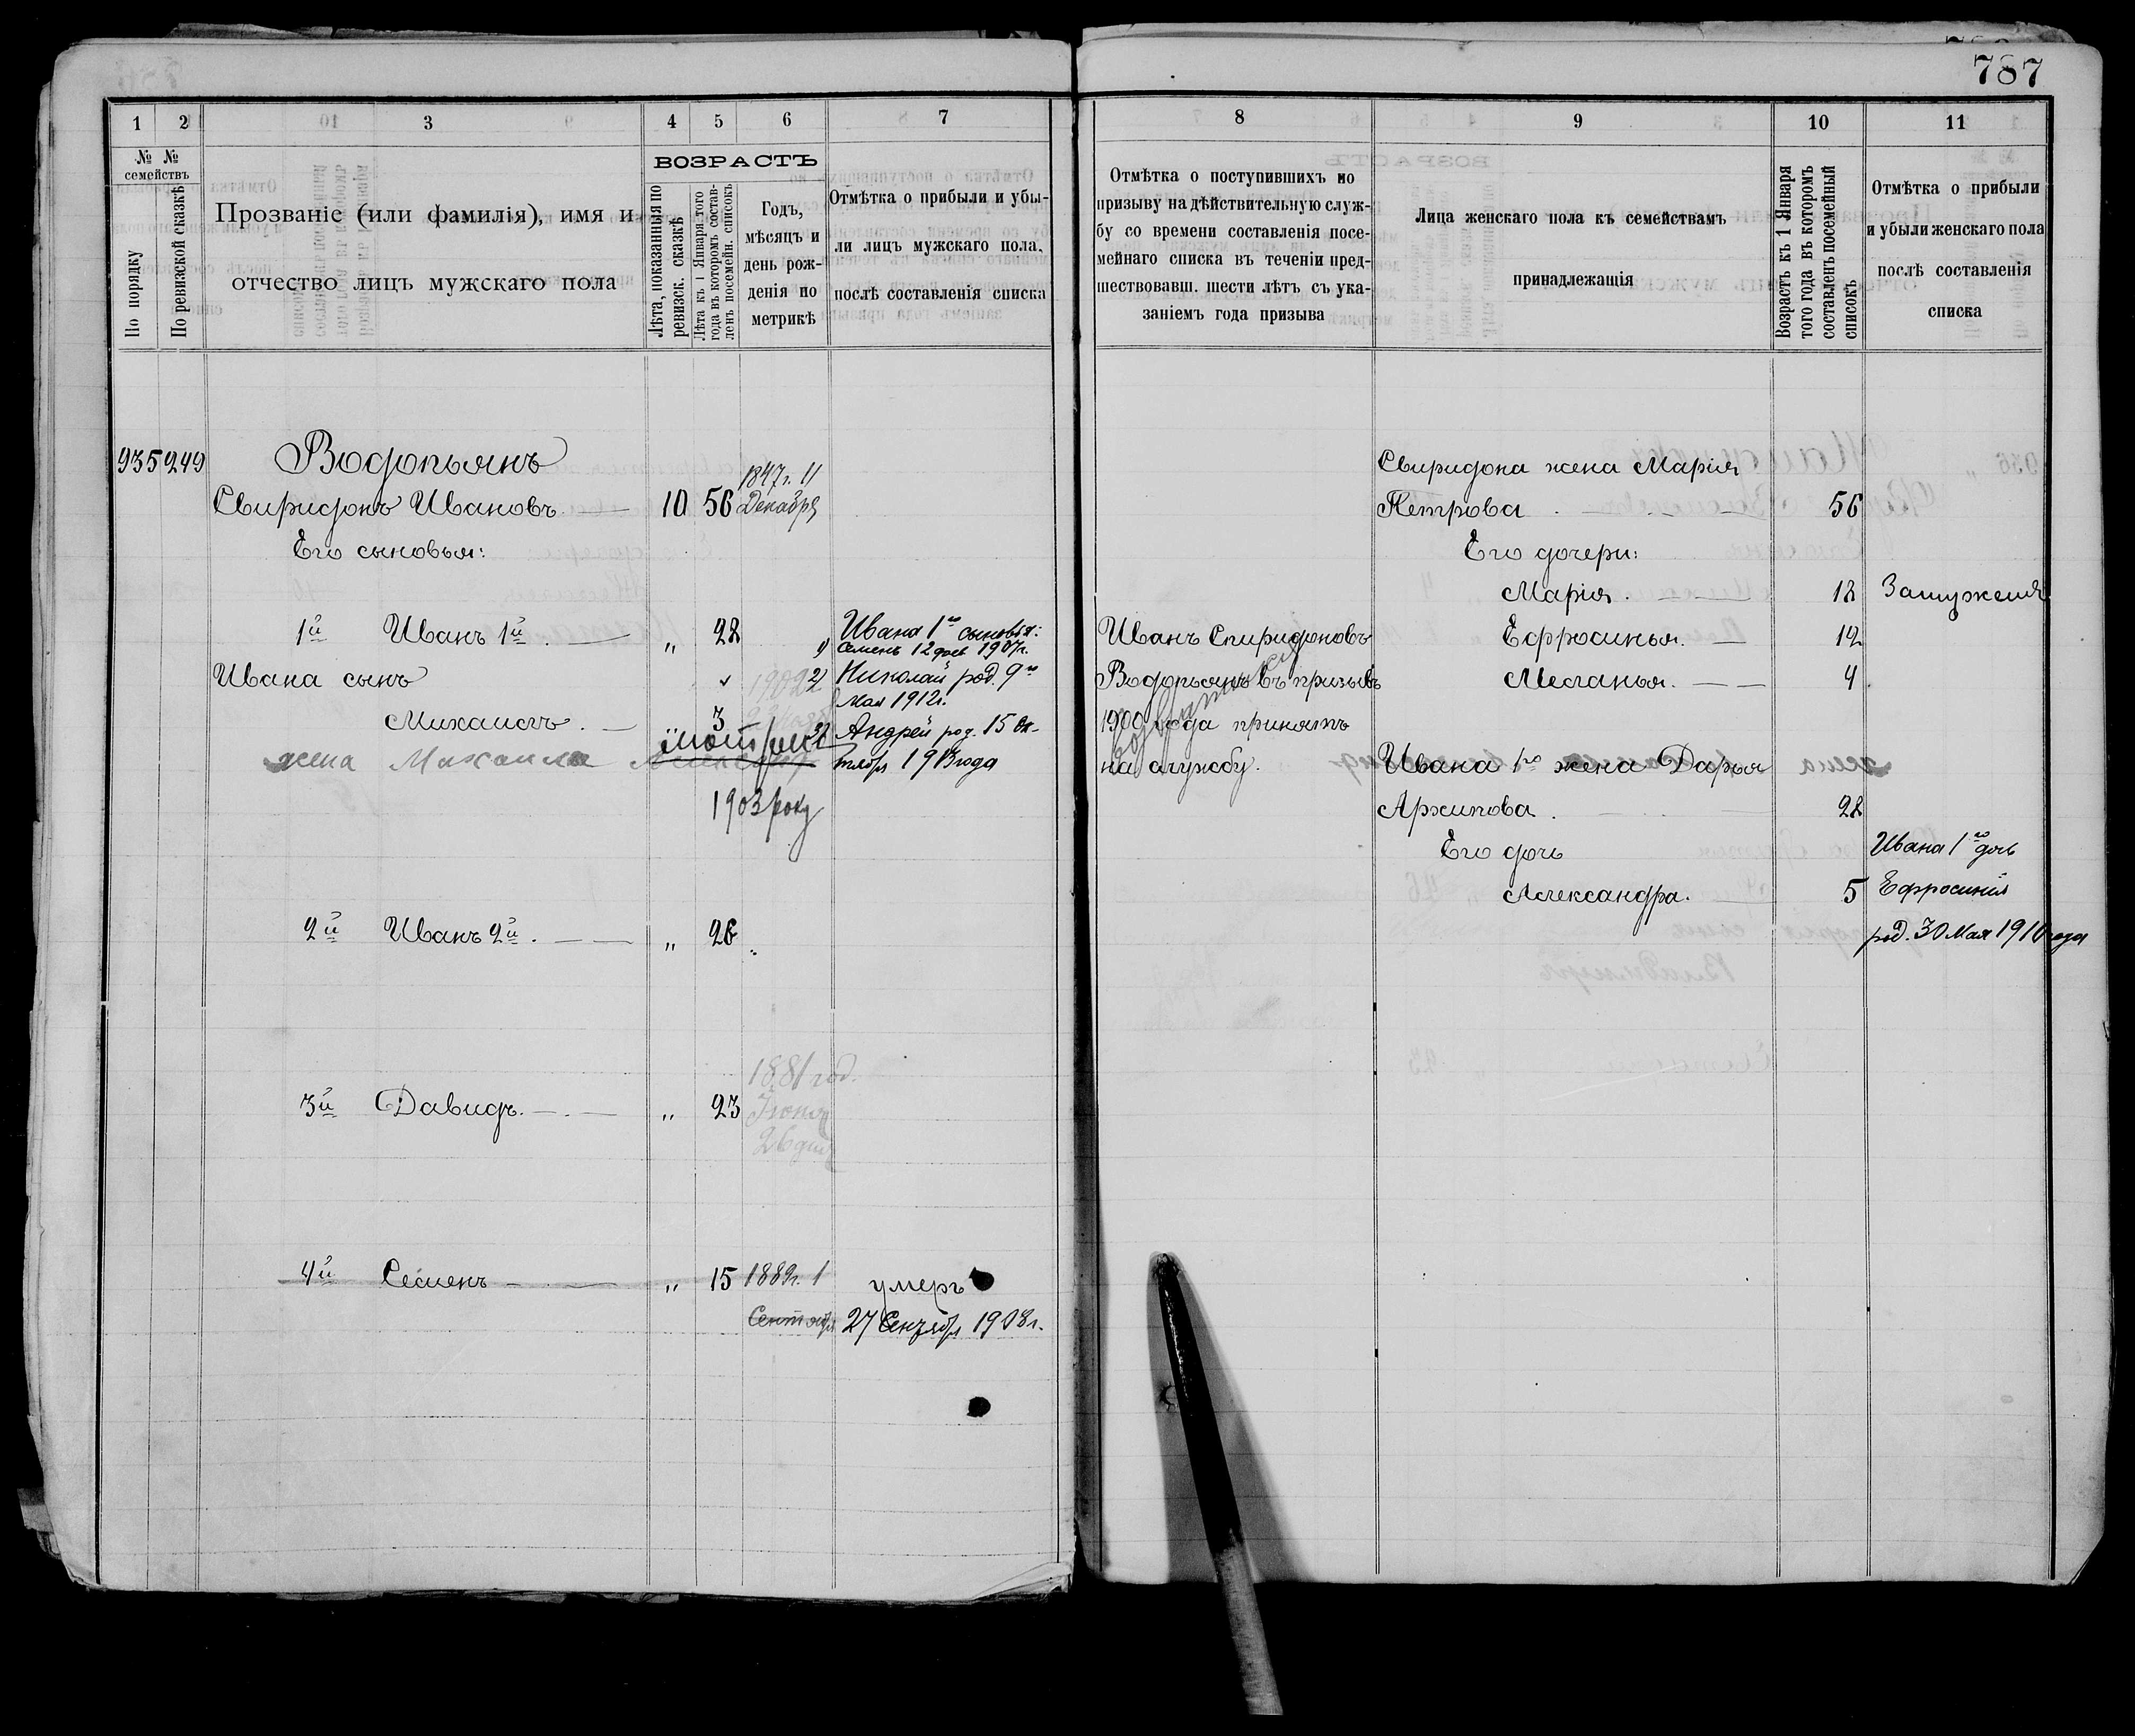 787
1 2 3 4 5 6 7
№ №
семействъ
По порядку
По ревизской сказкѣ
Прозваніе (или фамилія), имя и
отчество лицъ мужскаго пола
ВОЗРАСТЪ
Лѣта, показанныя по
ревизск. сказкѣ
Лѣта къ 1 Января того
года въ которомъ состав-
ленъ посемейн. списокъ
Годъ,
мѣсяцъ и
день рож-
денія по
метрикѣ
Отмѣтка о прибыли и убы-
ли лицъ мужскаго пола,
послѣ составленія списка
935 249 Водопьянъ
1847г. 11
Свиридонъ Ивановъ 10 56 Декабря
Его сыновья:
1й Иванъ 1й „ 28
Ивана 1го сыновья:
1) Семенъ 12 фев 1907г.
Ивана сынъ
1902 2) Николай род. 9го
Мая 1912г.
Михаилъ „ 3
3) Андрей род. 15 Ок-
жена Михаила
тября 1913 года
1903 року
2й Иванъ 2й „ 26
1881 год.
3й Давидъ „ 23 Іюня
26 дня
4й Семенъ „ 15 1889г. 1 умеръ
Сентября 27 Сентября 1908г.
8 9 10 11
Отмѣтка о поступившихъ по
призыву на дѣйствительную служ-
бу со времени составленія посе-
мейнаго списка въ теченіи пред-
шествовавш. шести лѣтъ съ ука-
заніемъ года призыва
Лица женскаго пола къ семействамъ
принадлежащія
Возрастъ къ 1 Января
того года въ которомъ
составленъ посемейный
списокъ
Отмѣтка о прибыли
и убыли женскаго пола
послѣ составленія
списка
Свиридона жена Марія
Петрова 56
Его дочери:
Марія 18 Замужемъ
Иванъ Спиридоновъ Ефросинья 12
Водопьянъ въ призывъ Меланья 4
1900 года принятъ
на службу. Ивана 1го жена Дарья
Архипова 28
Его дочь Ивана 1го дочь
Александра 5 Ефросинія
род. 30 Мая 1910 года